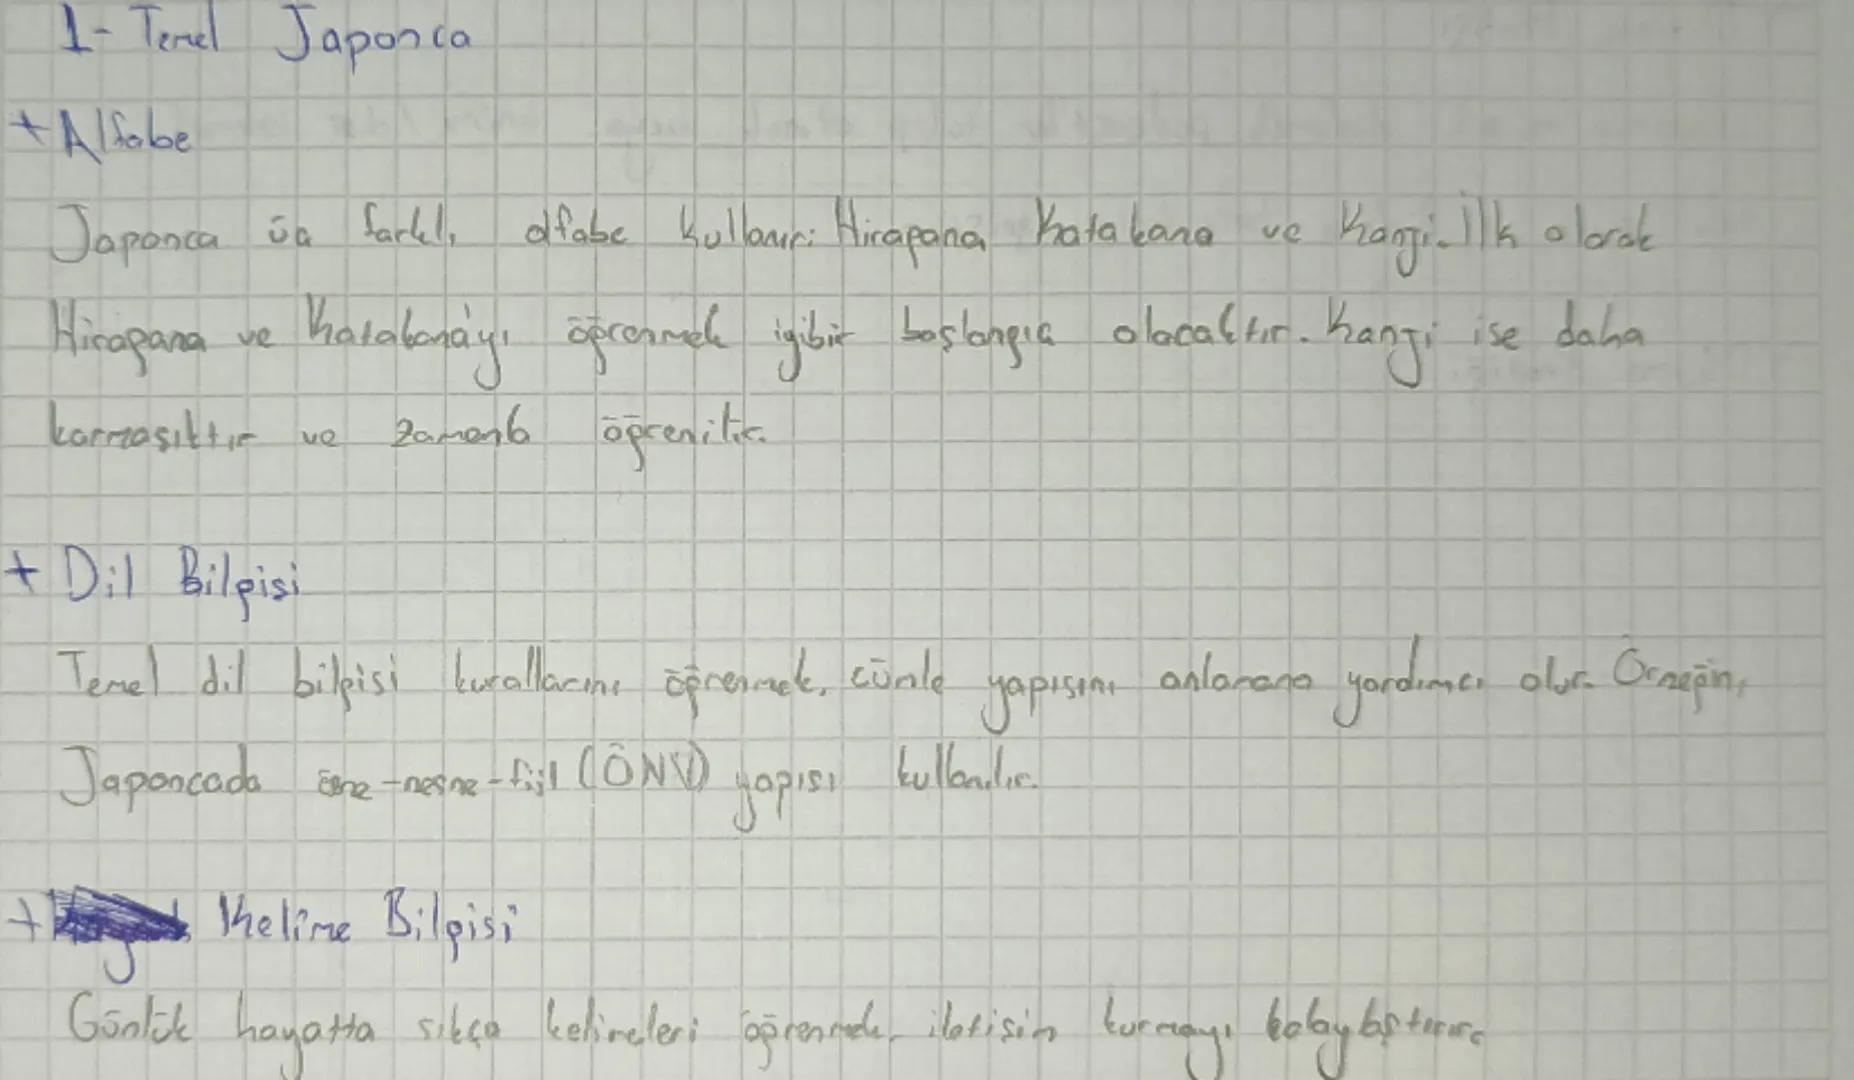 1- Temel Japonca
+ Alfabe
Japonca üç farklı alfabe kullanır: Hiragana, Katakana ve Kanji. İlk olarak
Hiragana ve Katakana'yı öğrenmek iyi bir başlangıç olacaktır. Kanji ise daha
karmaşıktır ve zamanla öğrenilir.
+ Dil Bilgisi
Temel dil bilgisi kurallarını öğrenmek, cümle yapısını anlamana yardımcı olur. Örneğin,
Japoncada özne-nesne-fiil (ÖNV) yapısı kullanılır.
+ Kelime Bilgisi
Günlük hayatta sıkça kelimeleri öğrenmek, iletişim kurmayı kolaylaştırır.